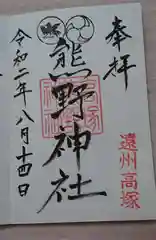 奉拝
遠州高塚
熊野神社
令和二年八月十四日